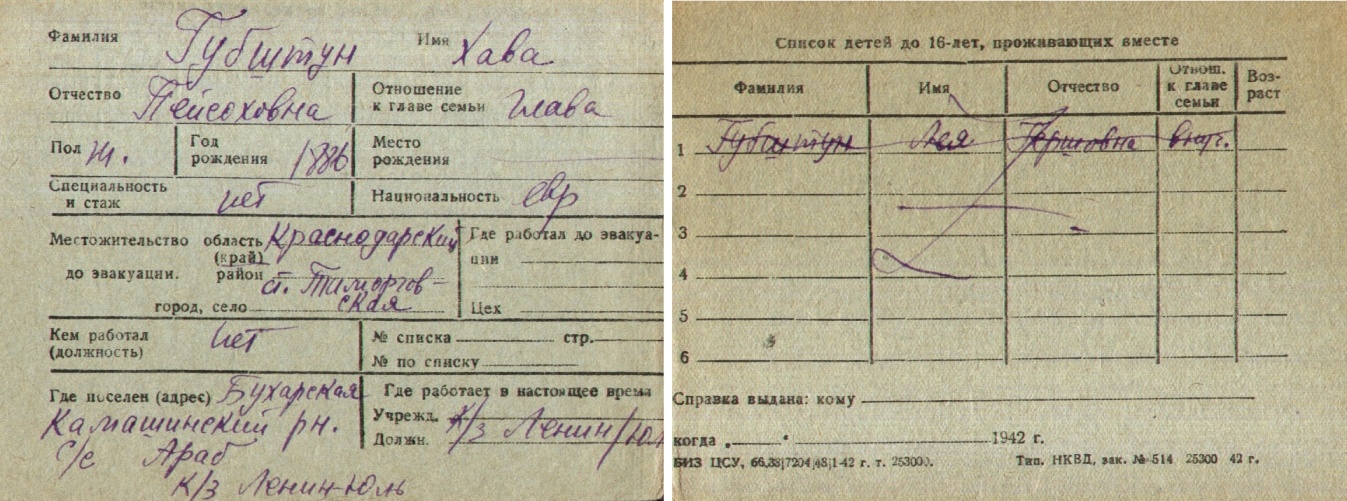 Фамилия Губштун Имя Хава
Отчество Пейсоховна Отношение к главе семьи глава
Пол ж. Год рождения 1886 Место рождения
Специальность и стаж нет Национальность евр
Местожительство до эвакуации. область (край) Краснодарский
район ст. Тиморгов-
город, село ская
Где работал до эвакуа-
ции
Цех
Кем работал (должность) нет
№ списка стр.
№ по списку
Где поселен (адрес) Бухарская
Камашинский рн.
с/с Араб
к/з Ленин-Юль
Где работает в настоящее время
Учрежд. к/з Ленин/Юл
Должн.
Список детей до 16-лет, проживающих вместе
Фамилия Имя Отчество Отнош. к главе семьи Воз-раст
1 Губштун Лея Гершовна внуч.
2
3
4
5
6
Справка выдана: кому
когда „ “ 1942 г.
БИЗ ЦСУ, 66,38|7204|48|1-42 г. т. 253000. Тип. НКВД, зак. № 514 25300 42 г.